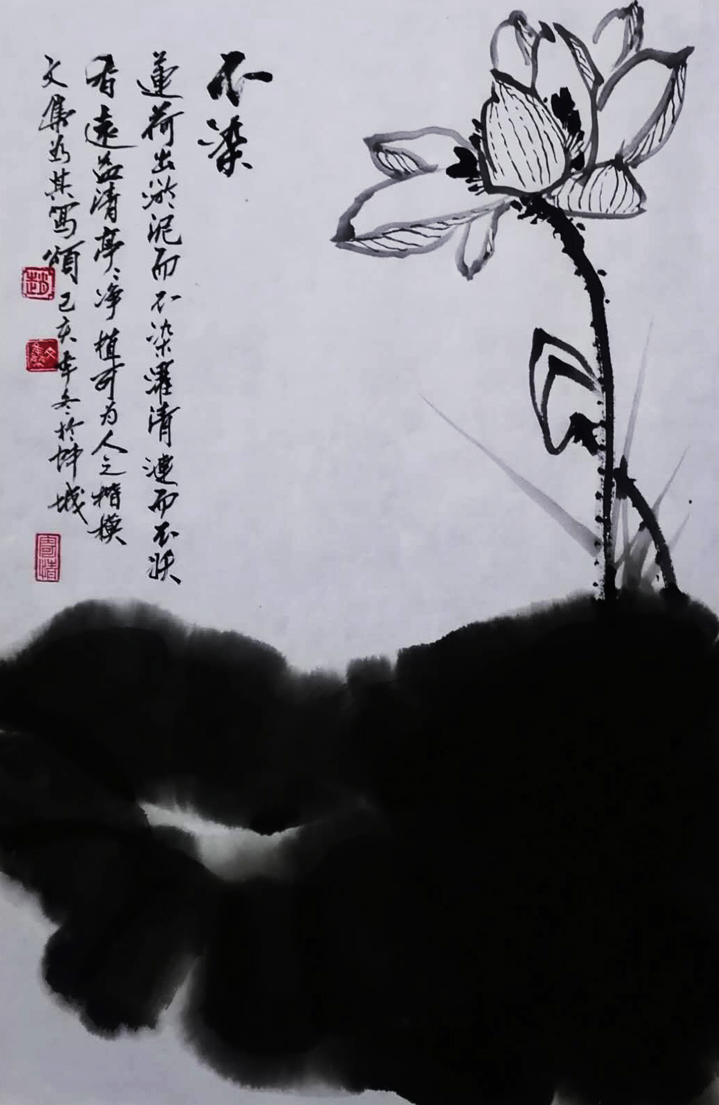 不染
蓮荷出淤泥而不染濯清漣而不妖
香遠益清亭亭净植可为人之楷模
文集为其寫頌己亥年冬於坤城